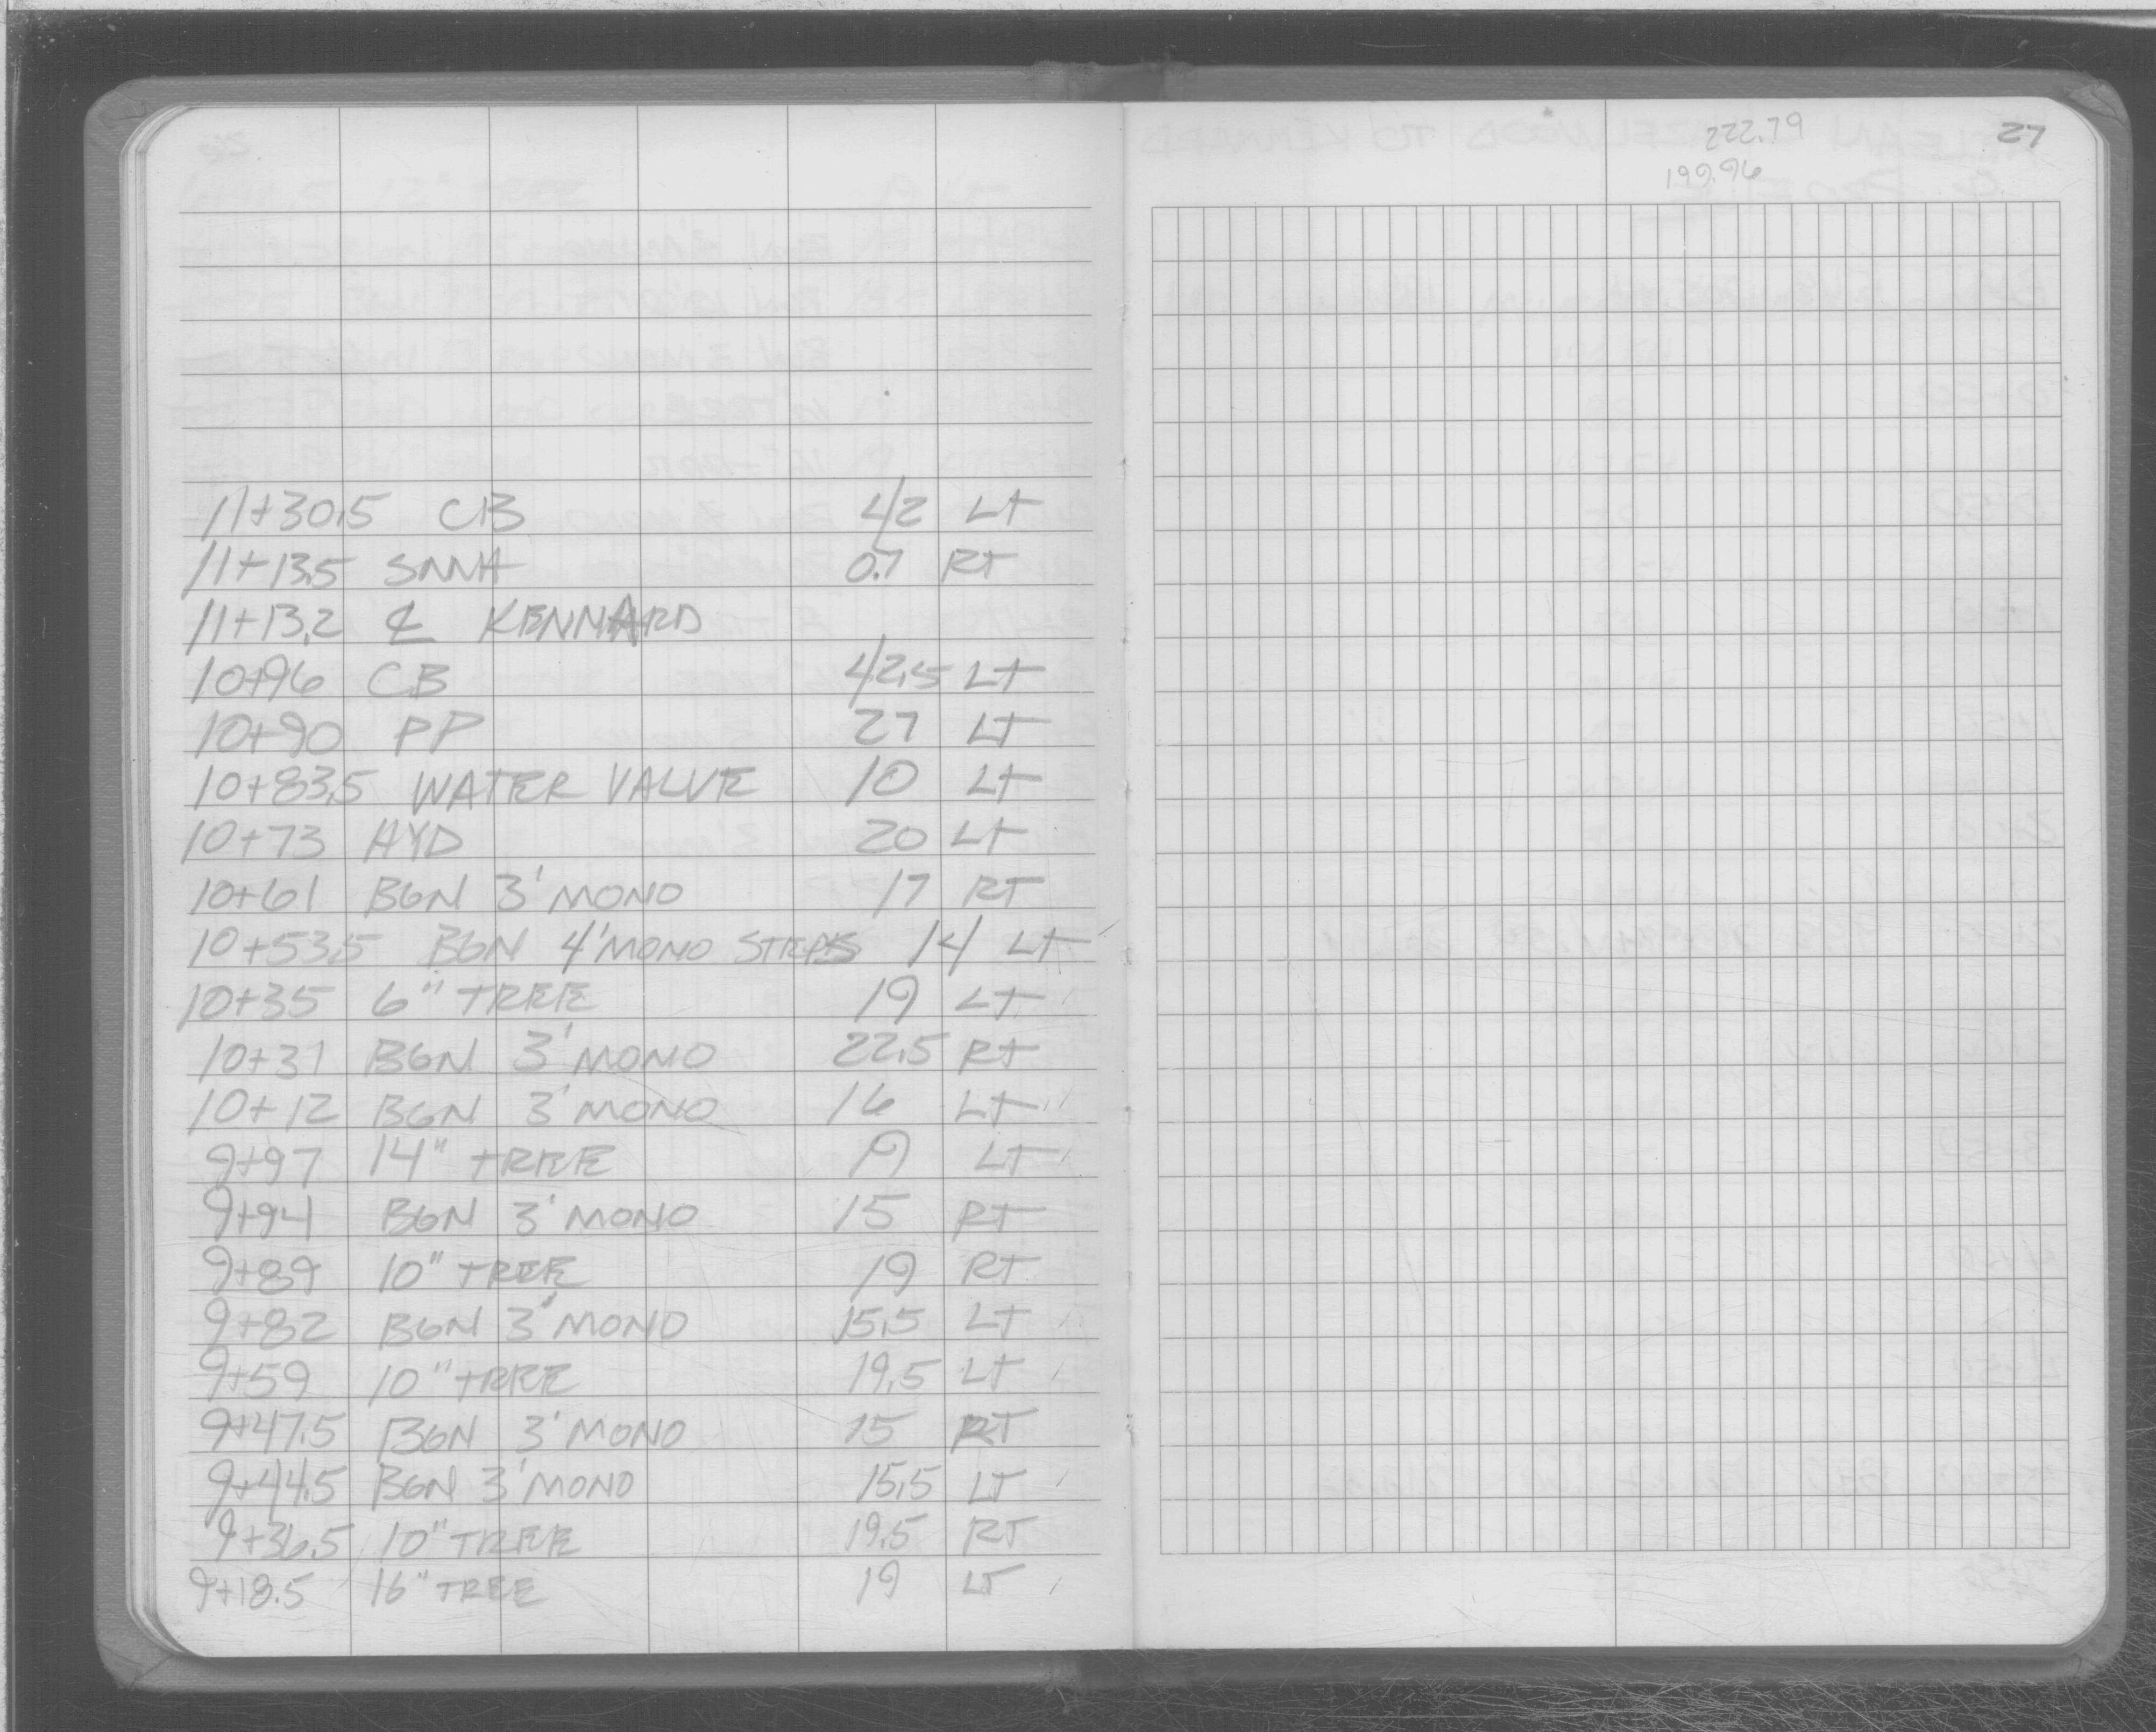 11+30.5 CB 42 LT
11+13.5 SMH 0.7 RT
11+13.2 ℄ KENNARD
10+96 CB 42.5 LT
10+90 PP 27 LT
10+83.5 WATER VALVE 10 LT
10+73 HYD 20 LT
10+61 BGN 3' MONO 17 RT
10+53.5 BGN 4' MONO STEPS 14 LT
10+35 6" TREE 19 LT
10+31 BGN 3' MONO 22.5 RT
10+12 BGN 3' MONO 16 LT
9+97 14" TREE 19 LT
9+94 BGN 3' MONO 15 RT
9+89 10" TREE 19 RT
9+82 BGN 3' MONO 15.5 LT
9+59 10" TREE 19.5 LT
9+47.5 BGN 3' MONO 15 RT
9+44.5 BGN 3' MONO 15.5 LT
9+36.5 10" TREE 19.5 RT
9+18.5 16" TREE 19 LT
222.79 27
199.96